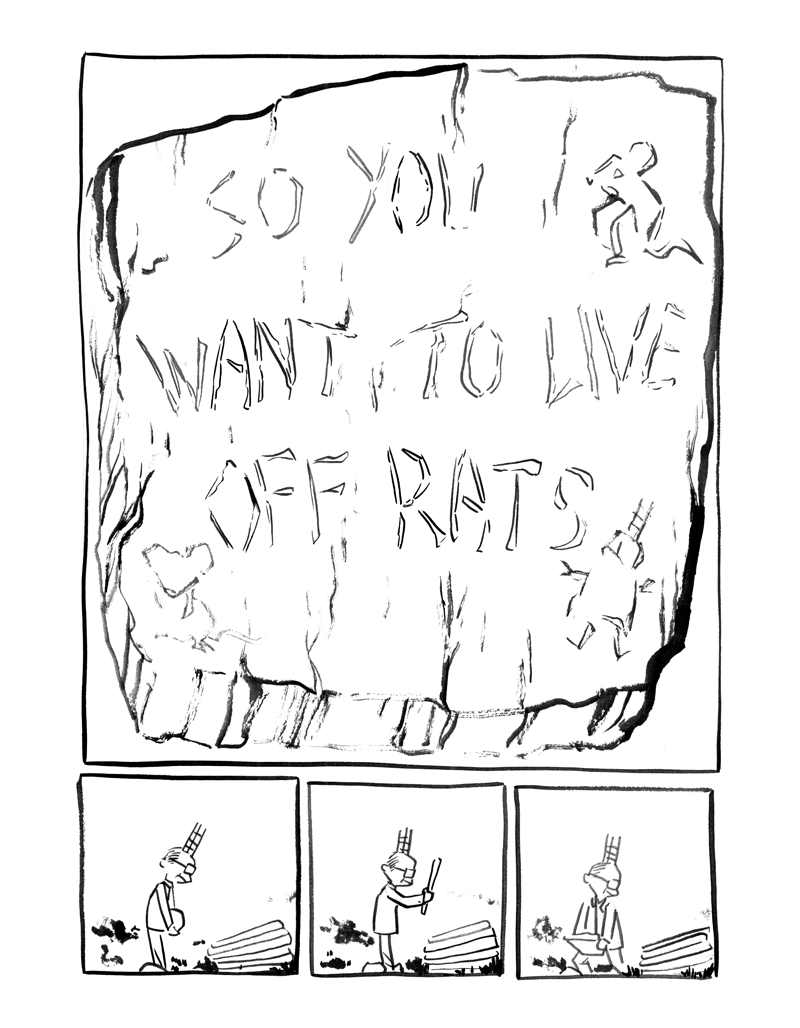 SO YOU
WANT TO LIVE
OFF RATS